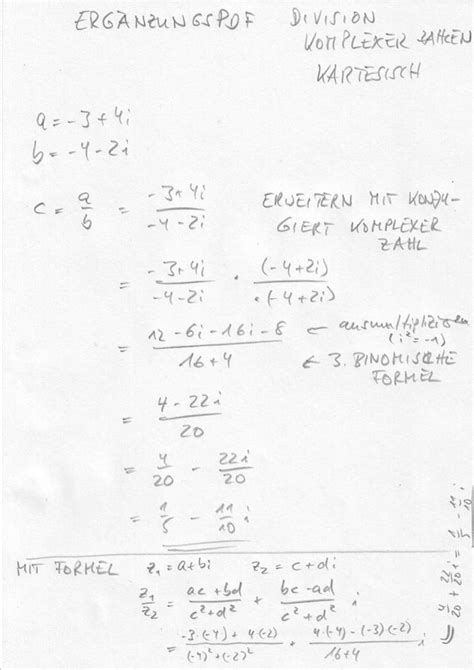 ERGÄNZUNGSPDF DIVISION
KOMPLEXER ZAHLEN
KARTESISCH
a = -3 + 4i
b = -4 - 2i
c = a/b = (-3+4i)/(-4-2i) ERWEITERN MIT KONJU-
GIERT KOMPLEXER
ZAHL
= (-3+4i)/(-4-2i) · (-4+2i)/·(-4+2i)
= (12 - 6i - 16i - 8)/(16+4) ← ausmultiplizieren
(i² = -1)
← 3. BINOMISCHE
FORMEL
= (4 - 22i)/20
= 4/20 - 22i/20
= 1/5 - 11/10 i
MIT FORMEL z₁ = a+bi z₂ = c+di
z₁/z₂ = (ac+bd)/(c²+d²) + (bc-ad)/(c²+d²) i
= (-3·(-4) + 4(-2))/((-4)²+(-2)²) + (4·(-4) - (-3)(-2))/(16+4) i